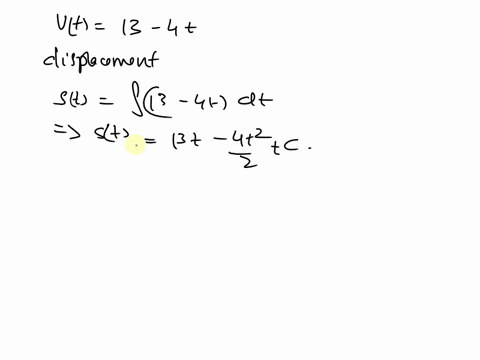 V(t) = 13 - 4t
displacement
s(t) = ∫(13 - 4t) dt
=> s(t) = 13t - 4t²/2 + C.